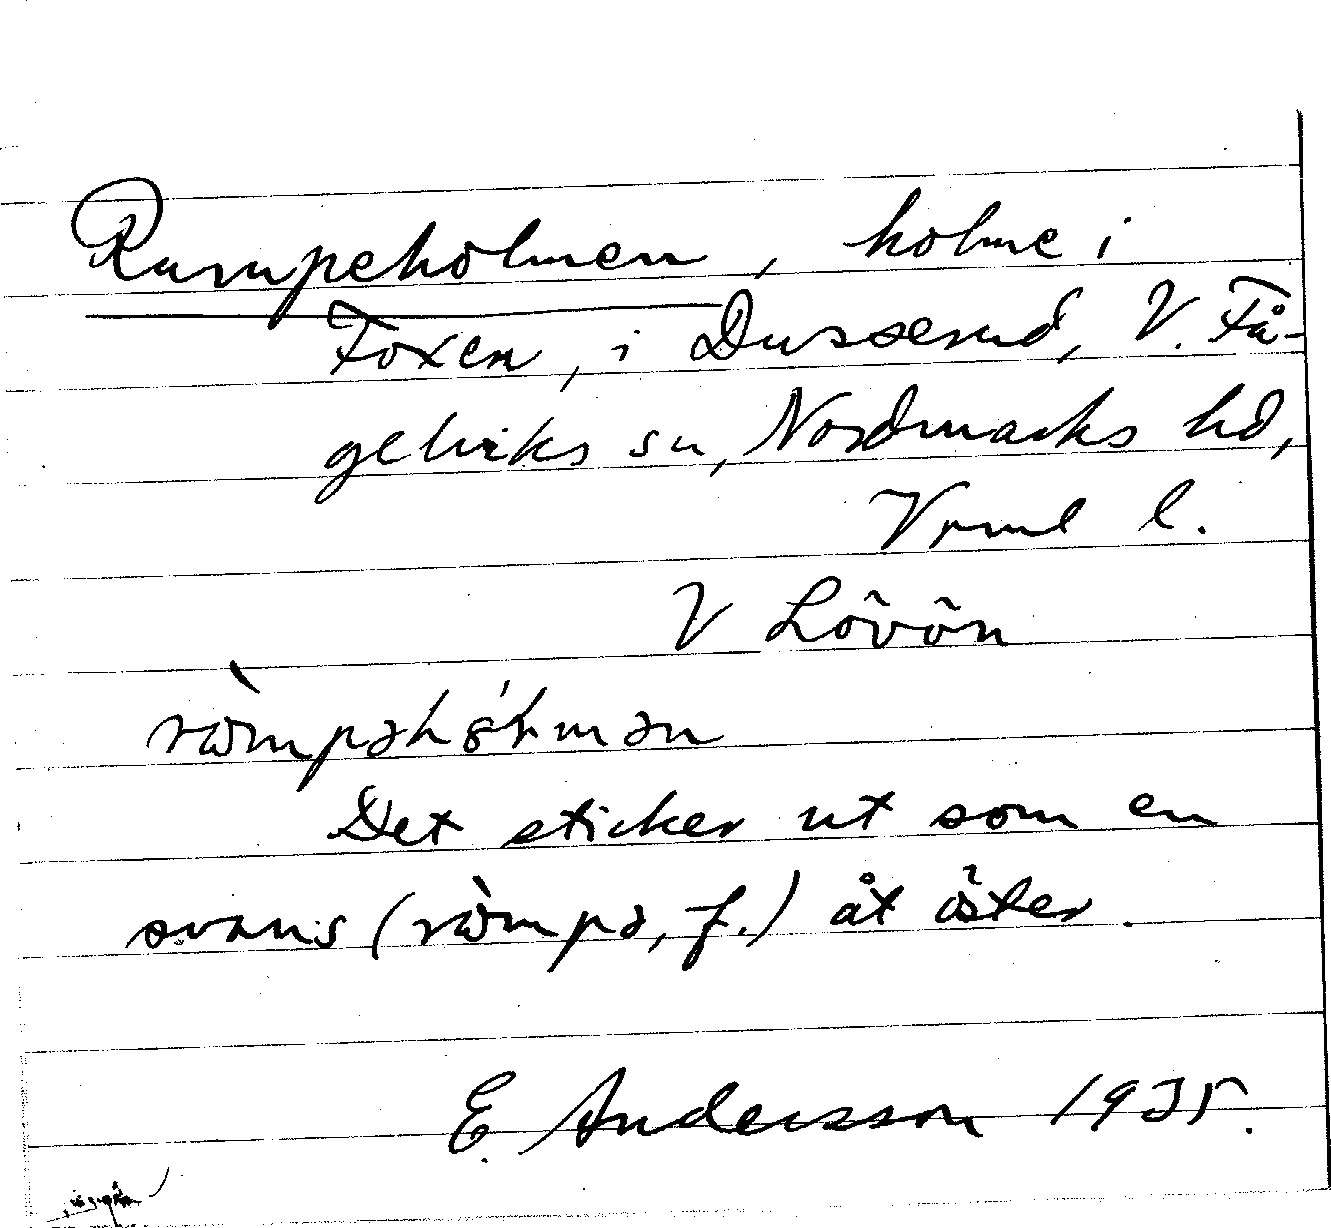 Rumpeholmen, holme i
Foxen, i Dusserud, V. Få-
gelviks sn, Nordmarks hd,
Vrml l.
V Lövön
ròmpəhól̥mən
Det sticker ut som en
svans (ròmpə, f.) åt öster.
E. Andersson 1935.